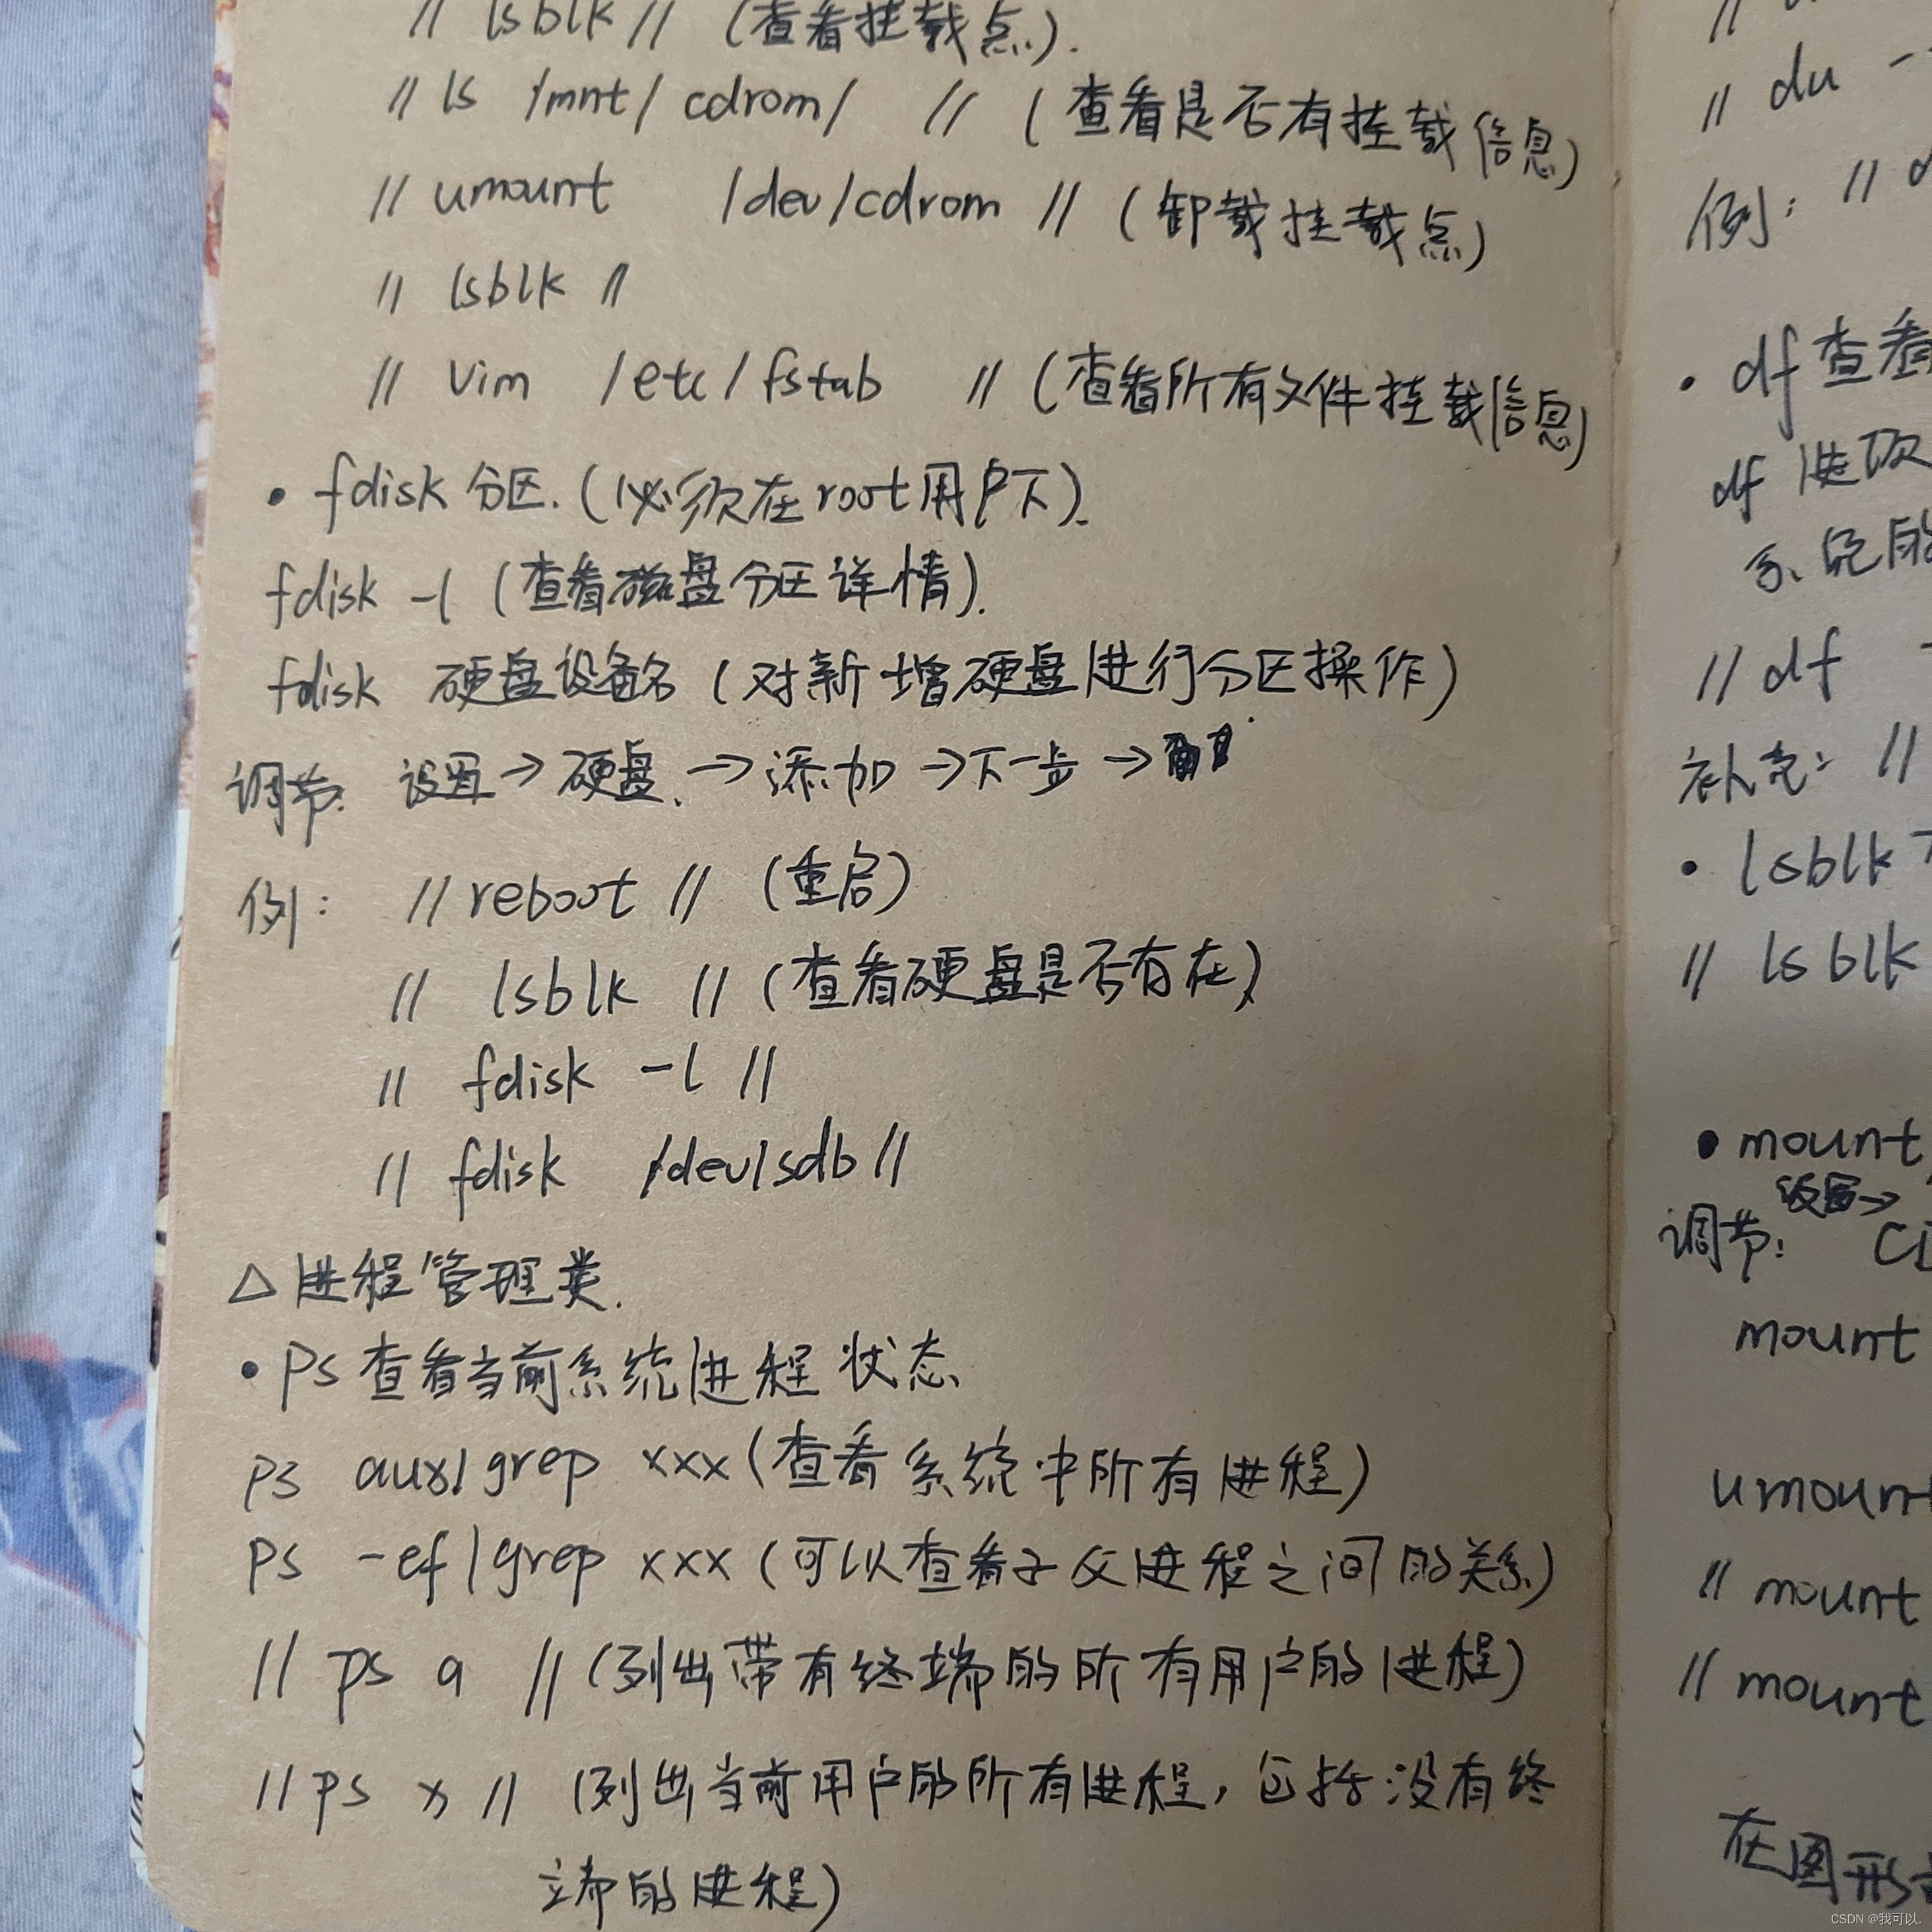 // lsblk // (查看挂载点).
// ls /mnt/ cdrom/ // (查看是否有挂载信息)
// umount /dev/cdrom // (卸载挂载点)
// lsblk //
// vim /etc/fstab // (查看所有文件挂载信息)
• fdisk 分区.(必须在root用户下).
fdisk -l (查看磁盘分区详情).
fdisk 硬盘设备名 (对新增硬盘进行分区操作)
调节: 设置→硬盘.→添加→下一步→
例: // reboot // (重启)
// lsblk // (查看硬盘是否有在)
// fdisk -l //
// fdisk /dev/sdb //
△进程管理类.
• ps 查看当前系统进程状态
ps aux|grep xxx (查看系统中所有进程)
ps -ef|grep xxx (可以查看子父进程之间的关系)
// ps a // (列出带有终端的所有用户的进程)
// ps x // (列出当前用户的所有进程,包括没有终
端的进程)
// du -
例: //
• df 查看
df 选项
系统的
// df
补充: //
• lsblk
// lsblk
• mount
设置→
调节:
mount
umount
// mount
// mount
在图形
CSDN @我可以.